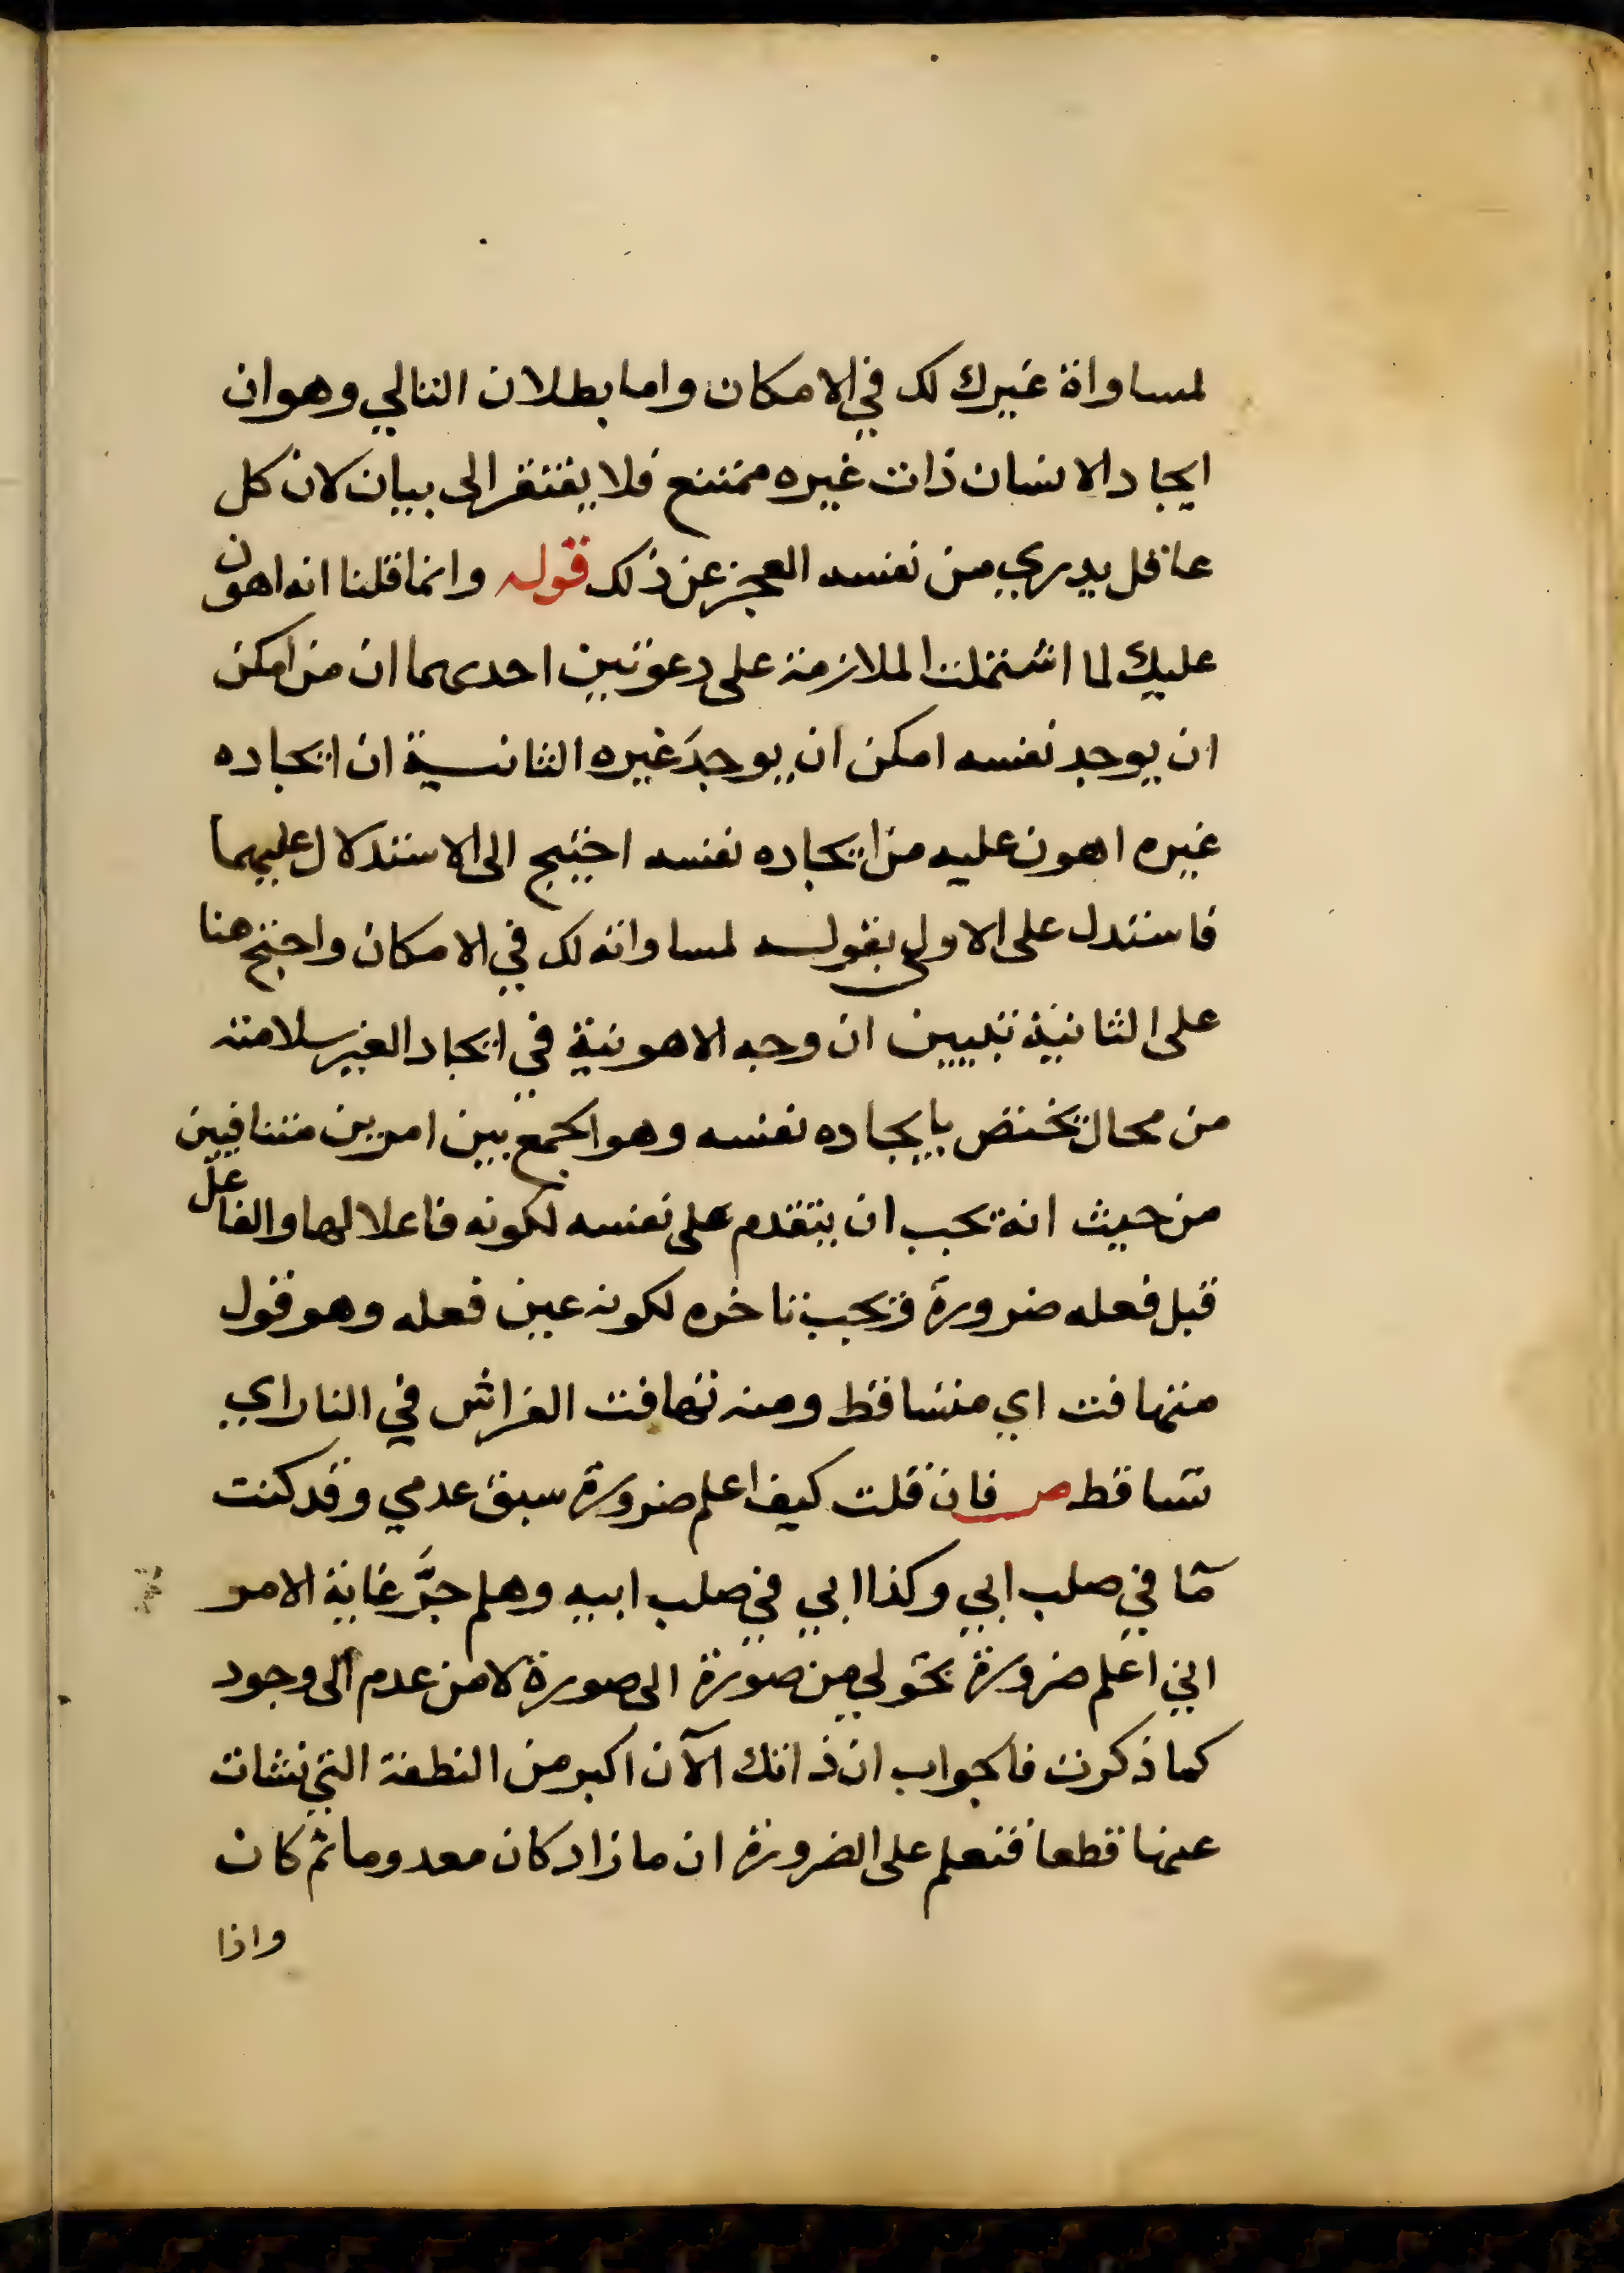 لمساواة غيرك لك في الامكان واما بطلان التالي وهو ان
ايجاد الانسان ذات غيره ممتنع فلا يفتقر الى بيان لان كل
عاقل يدري من نفسه العجز عن ذلك قوله وانما قلنا انه اهون
عليك لما اشتملت الملازمة على دعوتين احدىهما ان من امكن
ان يوجد نفسه امكن ان يوجدَ غيره الثانية ان ايجاده
غيره اهون عليه من ايجاده نفسه احتيج الى الاستدلال عليهما
فاستدل على الاولى بقوله لمساواته لك في الامكان واحتج هنا
على الثانية بتبيين ان وجه الاهونية في ايجاد الغير سلامته
من محال يختص بايجاده نفسه وهو الجمع بين امرين متنافيين
من حيث انه يجب ان يتقدم على نفسه لكونه فاعلا لها والفاعل
قبل فعله ضرورة ويجب تاخره لكونه عين فعله وهو قول
متهافت اي متساقط ومنه تهافت الفراش في النار اي
تساقط ص فان قلت كيف اعلم ضرورة سبق عدمي وقد كنت
مّا في صلب ابي وكذا ابي في صلب ابيه وهلم جرَّ غاية الامر
اني اعلم ضرورة تحولي من صورة الى صورة لا من عدم الى وجود
كما ذكرت فالجواب ان ذاتك الآن اكبر من النطفة التي نشات
عنها قطعا فتعلم على الضرورة ان ما زاد كان معدوما ثم كان
واذا